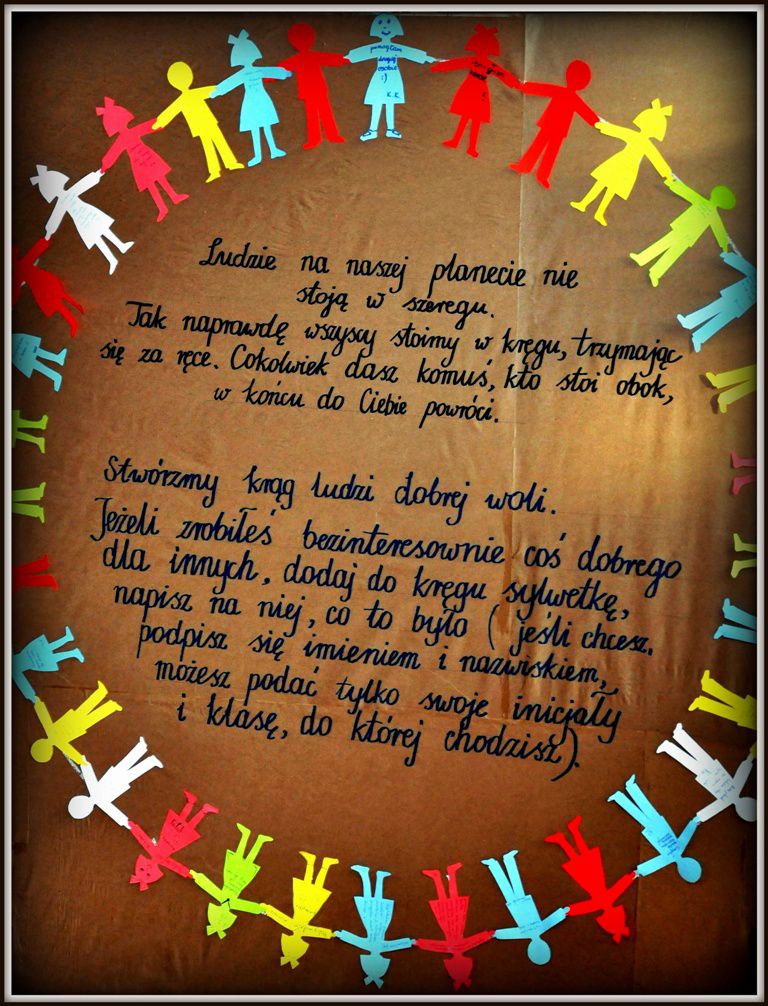 pomagłam
drugiej
osobie
:)
K.K.
Ludzie na naszej planecie nie
stoją w szeregu.
Tak naprawdę wszyscy stoimy w kręgu, trzymając
się za ręce. Cokolwiek dasz komuś, kto stoi obok,
w końcu do Ciebie powróci.
Stwórzmy krąg ludzi dobrej woli.
Jeżeli zrobiłeś bezinteresownie coś dobrego
dla innych, dodaj do kręgu sylwetkę,
napisz na niej, co to było (jeśli chcesz.
podpisz się imieniem i nazwiskiem,
możesz podać tylko swoje inicjały
i klasę, do której chodzisz).